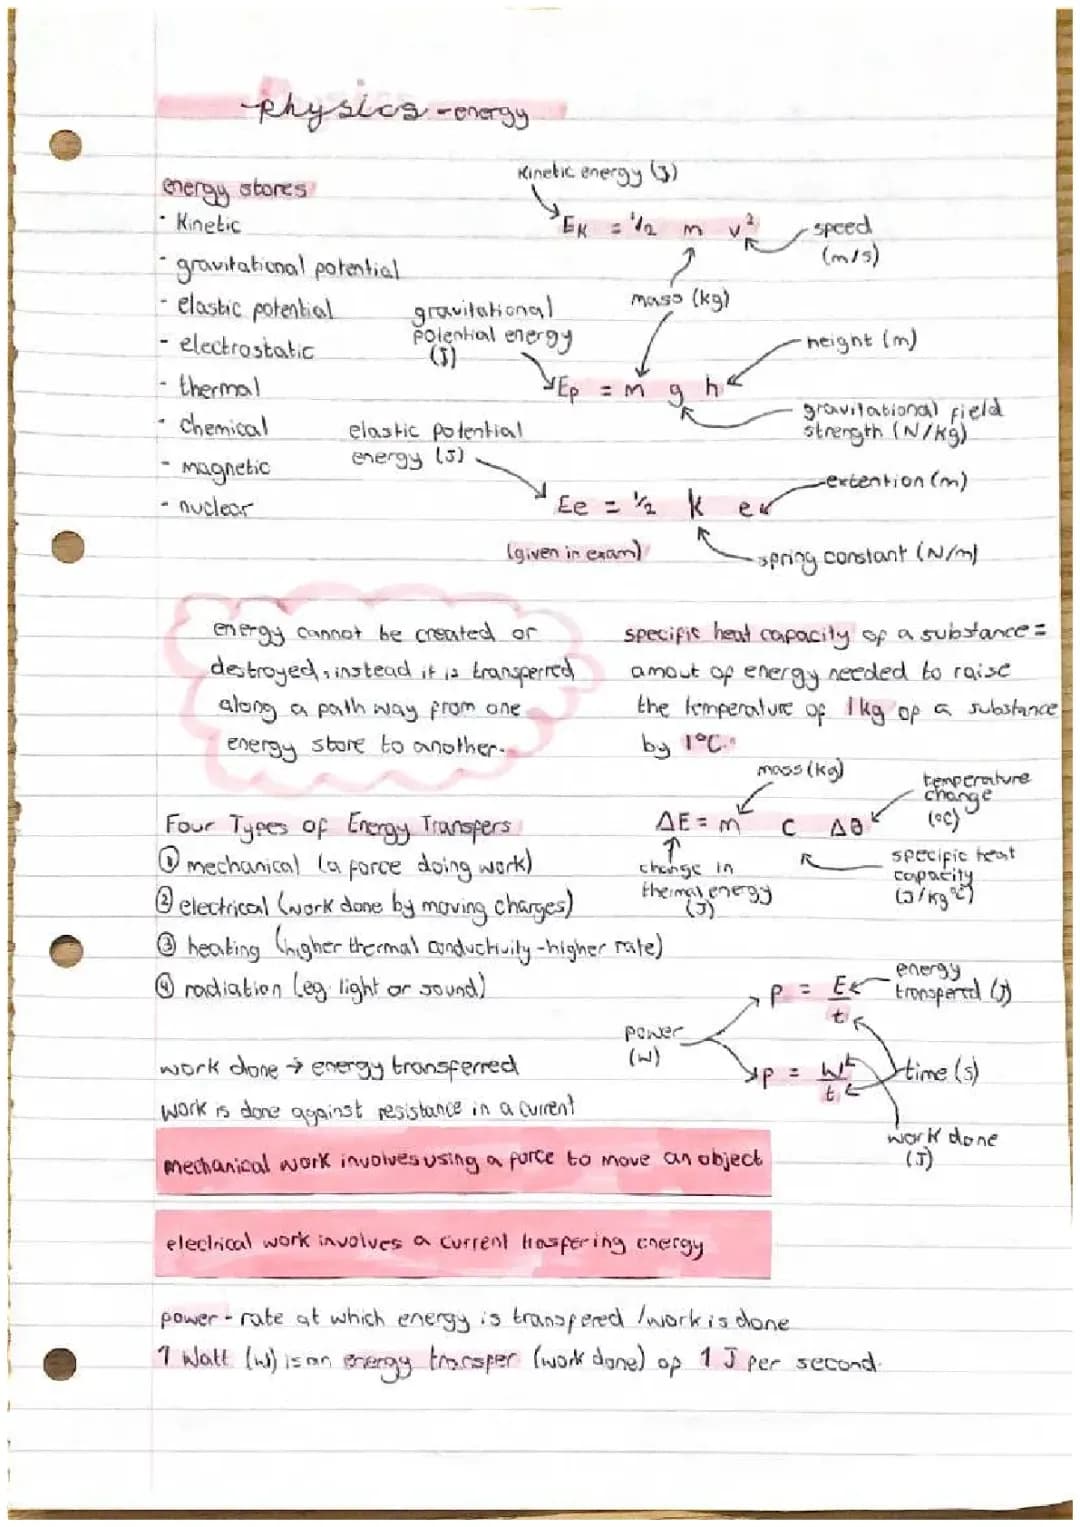 physics - energy
energy stores
· Kinetic
· gravitational potential
- elastic potential
- electrostatic
- thermal
· chemical
- magnetic
- nuclear
Kinetic energy (J)
Ek = 1/2 m v²
speed
(m/s)
mass (kg)
gravitational
potential energy
(J)
Ep = m g h
height (m)
gravitational field
strength (N/kg)
elastic potential
energy (J)
Ee = 1/2 k e
extention (m)
(given in exam)
spring constant (N/m)
energy cannot be created or
destroyed, instead it is transferred
along a path way from one
energy store to another.
specific heat capacity of a substance =
amout of energy needed to raise
the temperature of 1kg of a substance
by 1°C.
mass (kg)
temperature
change
(°C)
ΔE = m c Δθ
change in
thermal energy
(J)
specific heat
capacity
(J/kg°C)
Four Types of Energy Transfers
① mechanical (a force doing work)
② electrical (work done by moving charges)
③ heating (higher thermal conductivity - higher rate)
④ radiation (eg. light or sound)
power
(W)
P = E/t
energy
transferd (J)
P = W/t
time (s)
work done
(J)
work done → energy transferred
work is done against resistance in a current
mechanical work involves using a force to move an object
electrical work involves a current trasfering energy
power - rate at which energy is transfered /work is done
1 Watt (W) is an energy transfer (work done) of 1 J per second.